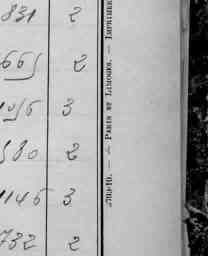 831 2
665 2
1056 3
580 2
1146 3
732 2
— PARIS ET LIMOGES. — IMPRIMER